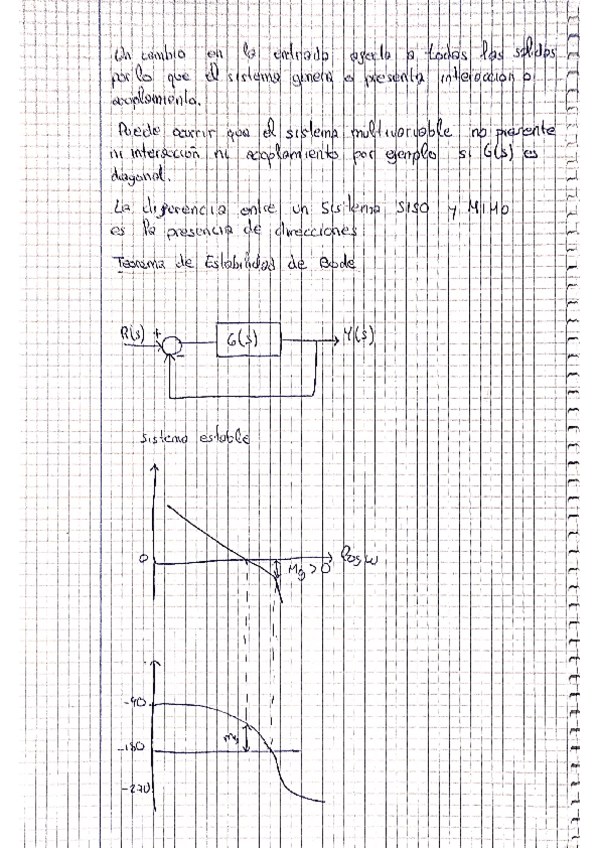 Un cambio en la entrada afecta a todas las salidas
por lo que el sistema genera o presenta interaccion o
acoplamiento.
Puede ocurrir que el sistema multivariable no presente
ni interacción ni acoplamiento por ejemplo si G(s) es
diagonal.
La diferencia entre un sistema SISO y MIMO
es la presencia de direcciones
Teorema de Estabilidad de Bode
R(s) + - G(s) Y(s)
sistema estable
0 Mg > 0 log w
-90
-180
-270